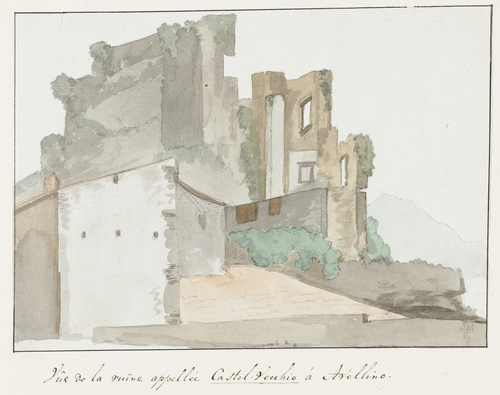 Vüe de la ruïne appellée Castel-Vecchio à Avellino.